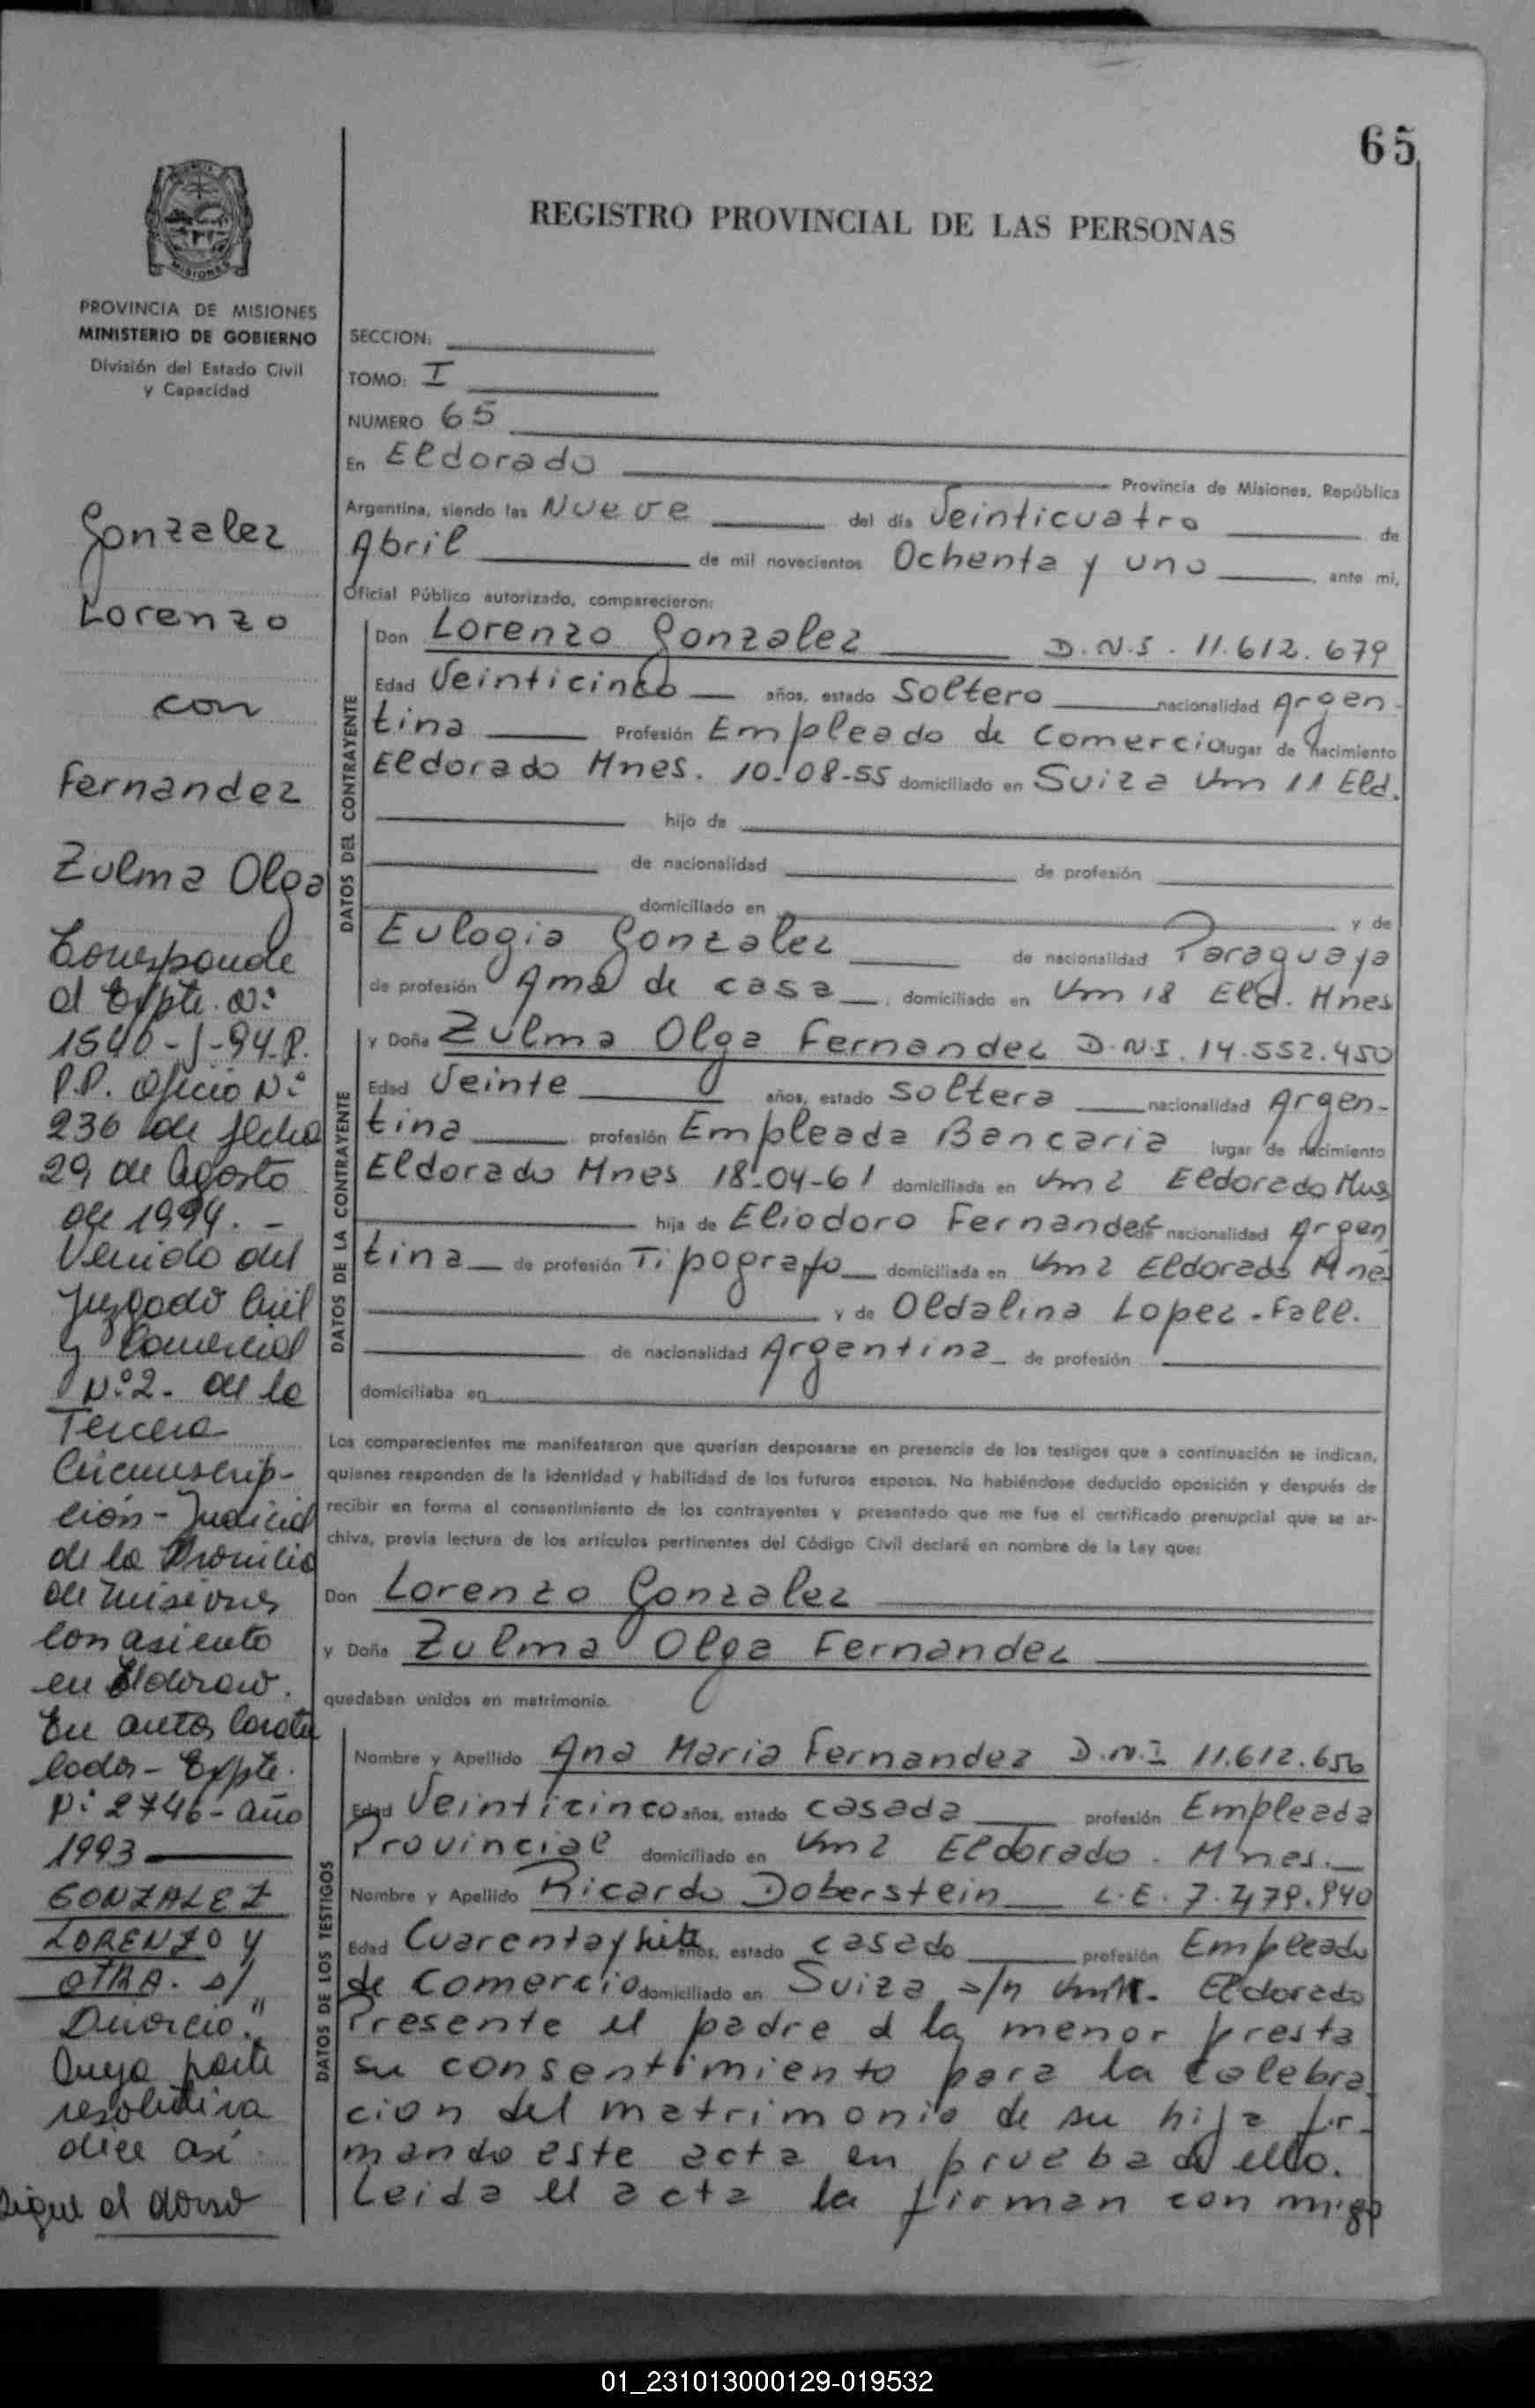 65
REGISTRO PROVINCIAL DE LAS PERSONAS
MISIONES
PROVINCIA DE MISIONES
MINISTERIO DE GOBIERNO
División del Estado Civil
y Capacidad
Gonzalez
Lorenzo
con
Fernandez
Zulma Olga
Corresponde
al Expte. Nº
1540-J-94-P.
P.P. Oficio Nº
236 de fecha
29 de Agosto
de 1994. -
Venido del
Juzgado Civil
y Comercial
Nº 2 - de la
Tercera
Circunscrip-
ción - Judicial
de la Provincia
de Misiones
con asiento
en Eldorado.
En autos Caratu
lados - Expte.
Nº 2746 - año
1993
GONZALEZ
LORENZO y
OTRA. s/
Divorcio."
Cuya parte
resolutiva
dice así
Sigue al dorso
SECCION:
TOMO: I
NUMERO 65
En Eldorado Provincia de Misiones, República
Argentina, siendo las Nueve del día Veinticuatro de
Abril de mil novecientos Ochenta y uno, ante mi,
Oficial Público autorizado, comparecieron:
DATOS DEL CONTRAYENTE
Don Lorenzo Gonzalez D.N.I. 11.612.679
Edad Veinticinco años, estado Soltero nacionalidad Argen-
tina Profesión Empleado de Comercio lugar de nacimiento
Eldorado Mnes. 10-08-55 domiciliado en Suiza Km 11 Eld.
hijo de
de nacionalidad de profesión
domiciliado en y de
Eulogia Gonzalez de nacionalidad Paraguaya
de profesión Ama de casa, domiciliado en Km 18 Eld. Mnes
DATOS DE LA CONTRAYENTE
y Doña Zulma Olga Fernandez D.N.I. 14.552.450
Edad Veinte años, estado Soltera nacionalidad Argen-
tina profesión Empleada Bancaria lugar de nacimiento
Eldorado Mnes 18-04-61 domiciliada en Km 2 Eldorado Mns
hija de Eliodoro Fernandez de nacionalidad Argen
tina de profesión Tipografo domiciliada en Km 2 Eldorado Mnes
y de Oldalina Lopez - Fall.
de nacionalidad Argentina de profesión
domiciliaba en
Los comparecientes me manifestaron que querían desposarse en presencia de los testigos que a continuación se indican,
quienes responden de la identidad y habilidad de los futuros esposos. No habiéndose deducido oposición y después de
recibir en forma el consentimiento de los contrayentes y presentado que me fue el certificado prenupcial que se ar-
chiva, previa lectura de los artículos pertinentes del Código Civil declaré en nombre de la Ley que:
Don Lorenzo Gonzalez
y Doña Zulma Olga Fernandez
quedaban unidos en matrimonio.
DATOS DE LOS TESTIGOS
Nombre y Apellido Ana Maria Fernandez D.N.I 11.612.656
Edad Veinticinco años, estado casada profesión Empleada
Provincial domiciliado en Km 2 Eldorado. Mnes.
Nombre y Apellido Ricardo Doberstein L.E. 7.479.940
Edad Cuarenta y Siete años, estado casado profesión Empleado
de comercio domiciliado en Suiza s/n Km 11. Eldorado
Presente el padre d la menor presta
su consentimiento para la celebra
cion del matrimonio de su hija fir-
mando este acta en prueba d ello.
Leida el acta la firman con migo
01_231013000129-019532